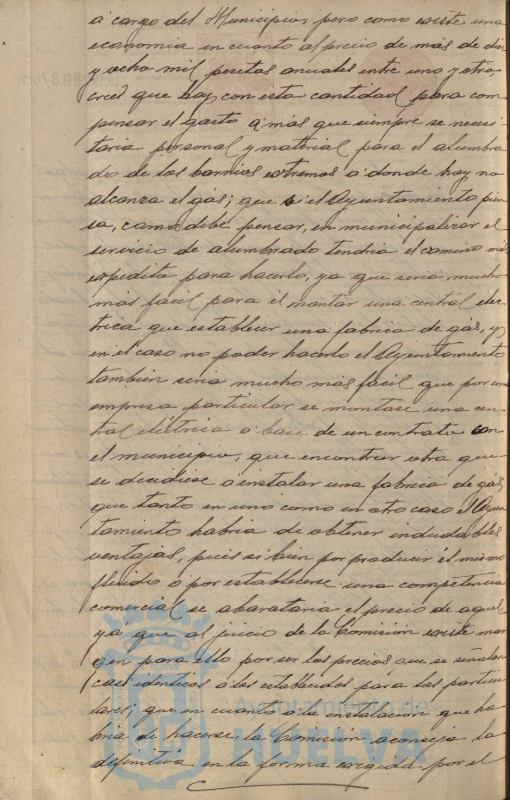 á cargo del Municipio, pero como existe una
economia en cuanto al precio de más de diez
y ocho mil pesetas anuales entre uno y otro
cree que hay con esta cantidad para com
pensar el gasto á más que siempre se necesi
taria personal y material para el alumbra
do de los barrios extremos á donde hoy no
alcanza el gas; que si el Ayuntamiento pien
sa, como debe pensar, en municipalizar el
servicio de alumbrado tendria el camino más
expedito para hacerlo, ya que seria mucho
más facil para él montar una central elec
trica que establecer una fabrica de gas, y
en el caso no poder hacerlo el Ayuntamiento
tambien seria mucho más facil que por una
empresa particular se montase una cen
tral eléctrica á base de un contrato con
el municipio, que encontrar otra que
se decidiese á instalar una fabrica de gas,
que tanto en uno como en otro caso el Ayun
tamiento habria de obtener indudables
ventajas, pues si bien por producir él mismo
fluido ó por establecerse una competencia
comercial se abarataria el precio de aquel
ya que al juicio de la Comision existe mar
gen para ello por ser los precios que se señalan
casi identicos á los establecidos para los particu
lares; que en cuanto á la instalacion que ha
bria de hacerse, la Comision aconseja la
definitiva en la forma exigida por el
Ayuntamiento de
HUELVA